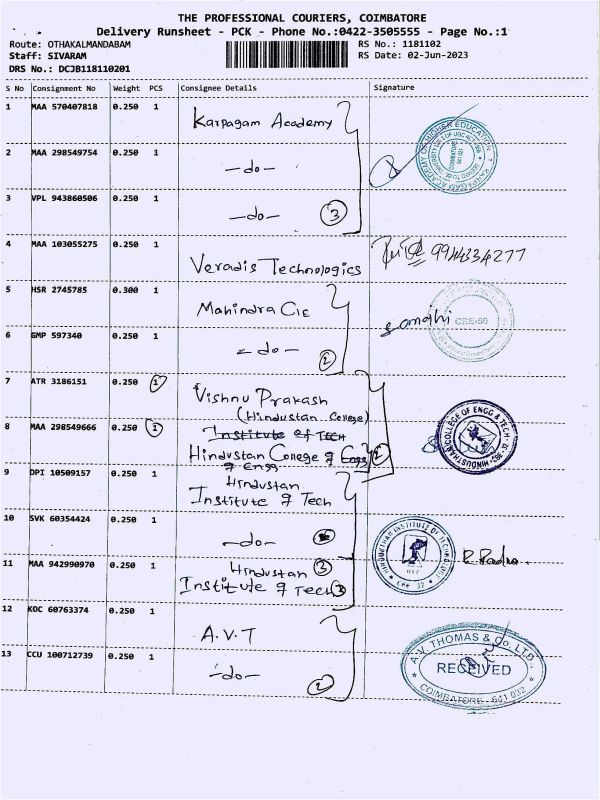 THE PROFESSIONAL COURIERS, COIMBATORE
Delivery Runsheet - PCK - Phone No.:0422-3505555 - Page No.:1
Route: OTHAKALMANDABAM RS No.: 1181102
Staff: SIVARAM RS Date: 02-Jun-2023
DRS No.: DCJB118110201
S No Consignment No Weight PCS Consignee Details Signature
1 MAA 570407818 0.250 1 Karpagam Academy
2 MAA 298549754 0.250 1 -do-
3 VPL 943860506 0.250 1 -do- 3
4 MAA 103055275 0.250 1 Veradis Technologies 9944334277
5 HSR 2745785 0.300 1 Mahindra CIE
6 GMP 597340 0.250 1 -do- 2
CBE-50
7 ATR 3186151 0.250 1 Vishnu Prakash
(Hindustan College)
8 MAA 298549666 0.250 1 Institute of Tech
Hindustan College of Engg 2
of Engg
HINDUSTHAN COLLEGE OF ENGG & TECH
9 DPI 10509157 0.250 1 Hindustan
Institute of Tech
10 SVK 60354424 0.250 1 -do-
11 MAA 942990970 0.250 1 Hindustan 3
Institute of Tech 3
HINDUSTHAN INSTITUTE OF TECHNOLOGY
CBE 32
R. Padma
12 KOC 60763374 0.250 1 A.V.T
13 CCU 100712739 0.250 1 -do- 2
A.V. THOMAS & Co. LTD.
RECEIVED
COIMBATORE - 641 032